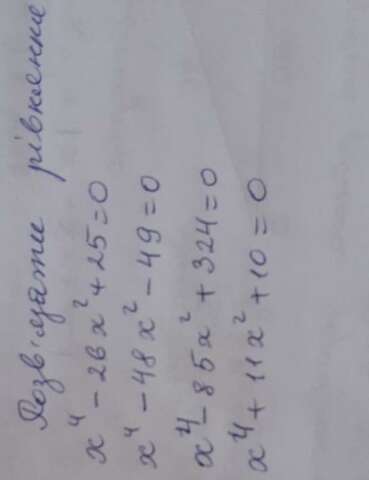 Розв'язати рівняння
x⁴ - 26x² + 25 = 0
x⁴ - 48x² - 49 = 0
x⁴ - 85x² + 324 = 0
x⁴ + 11x² + 10 = 0